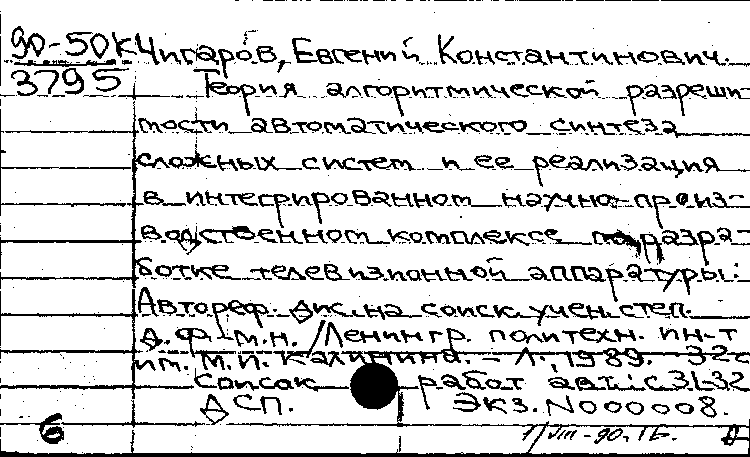 90-50к Чигаров, Евгений Константинович.
3795 Теория алгоритмической разреши-
мости автоматического синтеза
сложных систем и ее реализация
в интегрированном научно-произ-
водственном комплексе по разра-
ботке телевизионной аппаратуры:
Автореф. дис. на соиск. учен. степ.
д.ф.-м.н. /Ленингр. политехн. ин-т
им. М.И. Калинина. - Л., 1989. - 32с
Список работ авт.: с 31-32
ДСП. Экз. N000008.
6 1/VIII-90.